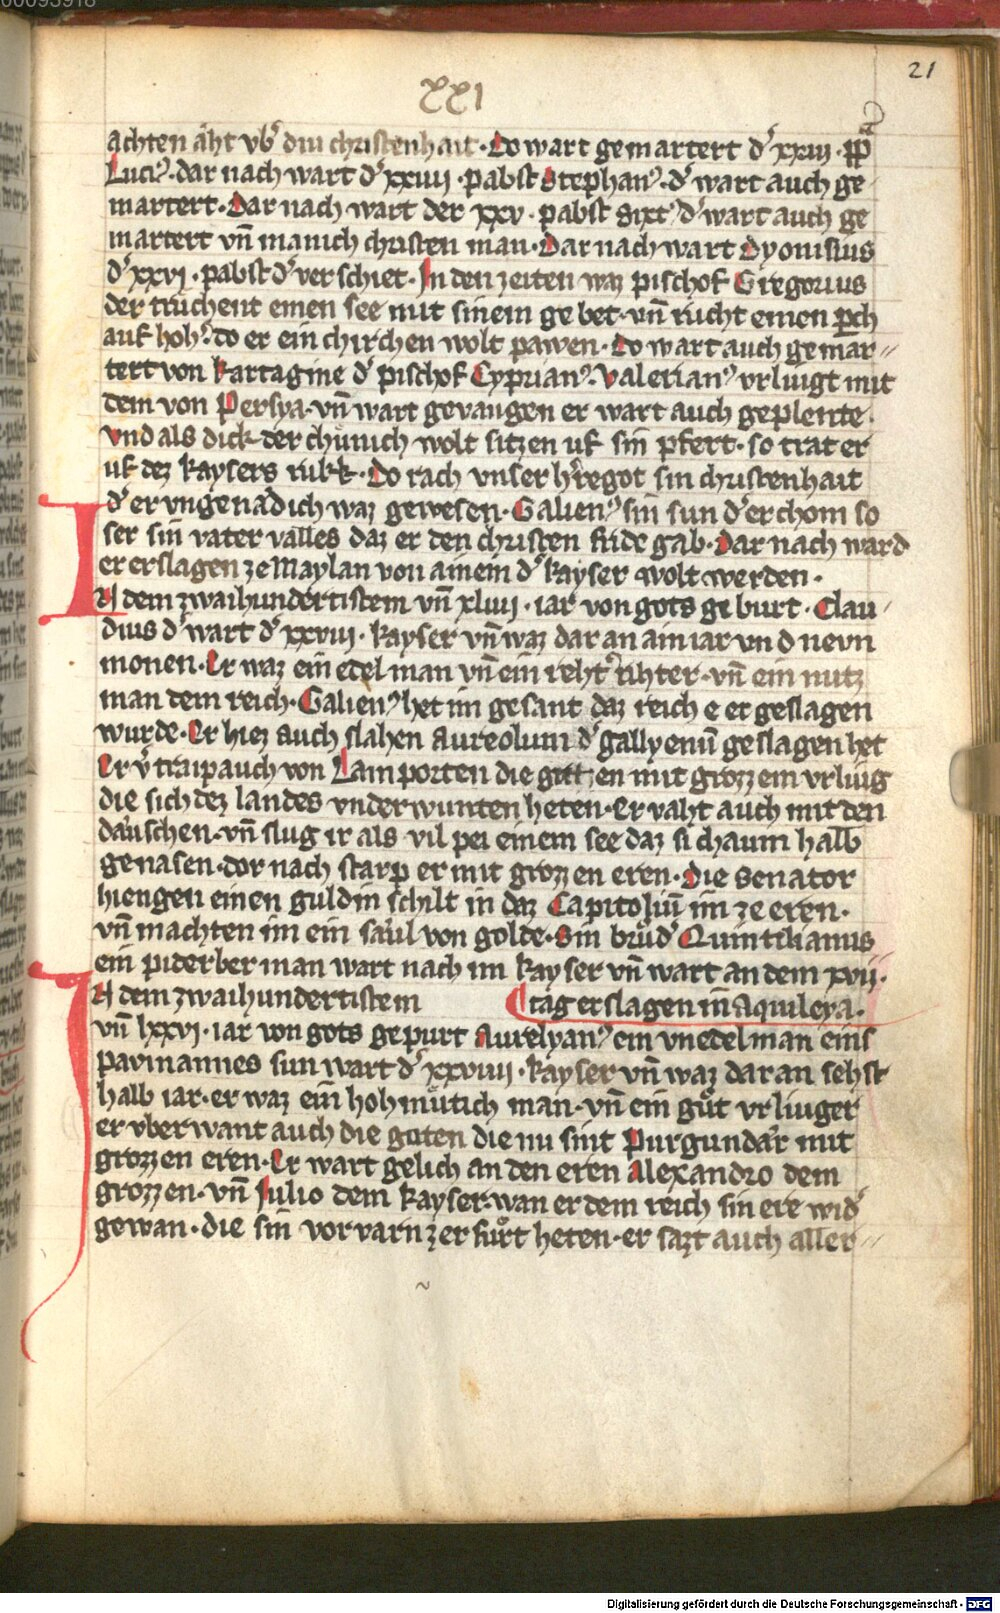 00093918
21
XXI
achten äht vb᷎ diu christenhait · Do wart gemartert d᷎ xxiii · pp
Luciꝰ · dar nach wart d᷎ xxiiii · pabst Stephanꝰ · d᷎ wart auch ge
martert · Dar nach wart der xxv · pabst sixtꝰ d᷎ wart auch ge
martert vn̄ manich christen man · Dar nach wart Dyonisius
d᷎ xxvi · pabst d᷎ ver schiet · In den zeiten waz pischof Gregorius
der trüchent einen see mit sinem ge bet · vn̄ rucht einen p̱ch
auf hohꝰ · do er ein chirchen wolt pawen · Do wart auch ge mar〃
tert von kartagine d᷎ pischof Cyprianꝰ · Valerianꝰ vrliugt mit
dem von Persya · vn̄ wart gevangen er wart auch geplente ·
vnd als dick der chünich wolt sitzen uf sin pfert · so trat er
uf dez kaysers rukk · Do rach vnser h᷎regot sin christenhait
d᷎ er vngenadich waz gewesen · Galienꝰ sin sun d᷎ erchom so
ser sin̄ vater valles daz er den christen fride gab · Dar nach ward
er erslagen ze Maylan von ainem d᷎ kayser wolt werden ·
IN dem zwaihundertistem vn̄ xliiii · iar von gots ge burt · Clau /
dius d᷎ wart d᷎ xxviii · kayser vn̄ waz dar an ain iar vn d nevn
monen · Er waz ein edel man vn̄ ein rehtꝰ rihter · vn̄ ein nutz
man dem reich · Galienꝰ het im gesant daz reich e er geslagen
wurde · Er hiez auch slahen Aureolum d᷎ gallyenū geslagen het
Er v᷎traip auch von Lamporten die gottzen mit grozzem vrliug
die sich dez landes vnderwunten heten · Er vaht auch mit den
däuschen · vn̄ slug ir als vil pei einem see daz si chaum halb
genasen · dor nach starp er mit grozzen eren · Die senator
hiengen einen guldin schilt in daz Capitoliū im ze eren ·
vn̄ machten im ein säul von golde · Sin brůd᷎ Quintilianus
ein piderber man wart nach im kayser vn̄ wart an dem xvii ·
IN dem zwaihundertistem ¶ tag erslagen in̄ Aquileya ·
vn̄ lxxvi · iar von gots gepurt Aurelyanꝰ ein vnedel man eins
pavmannes sun wart d᷎ xxviiii · kayser vn̄ waz dar an sehst
halb iar · er waz ein hoh mütich man · vn̄ ein gůt vrliuger
er vberwant auch die goten die nu sint Purgundär mit
grozzen eren · Er wart gelich an den eren Alexandro dem
grozzen · vn̄ Julio dem kayser · wan er dem reich sin ere wid᷎
gewan · die sin̄ vorvarn zerfůrt heten · er sazt auch aller〃
Digitalisierung gefördert durch die Deutsche Forschungsgemeinschaft - DFG